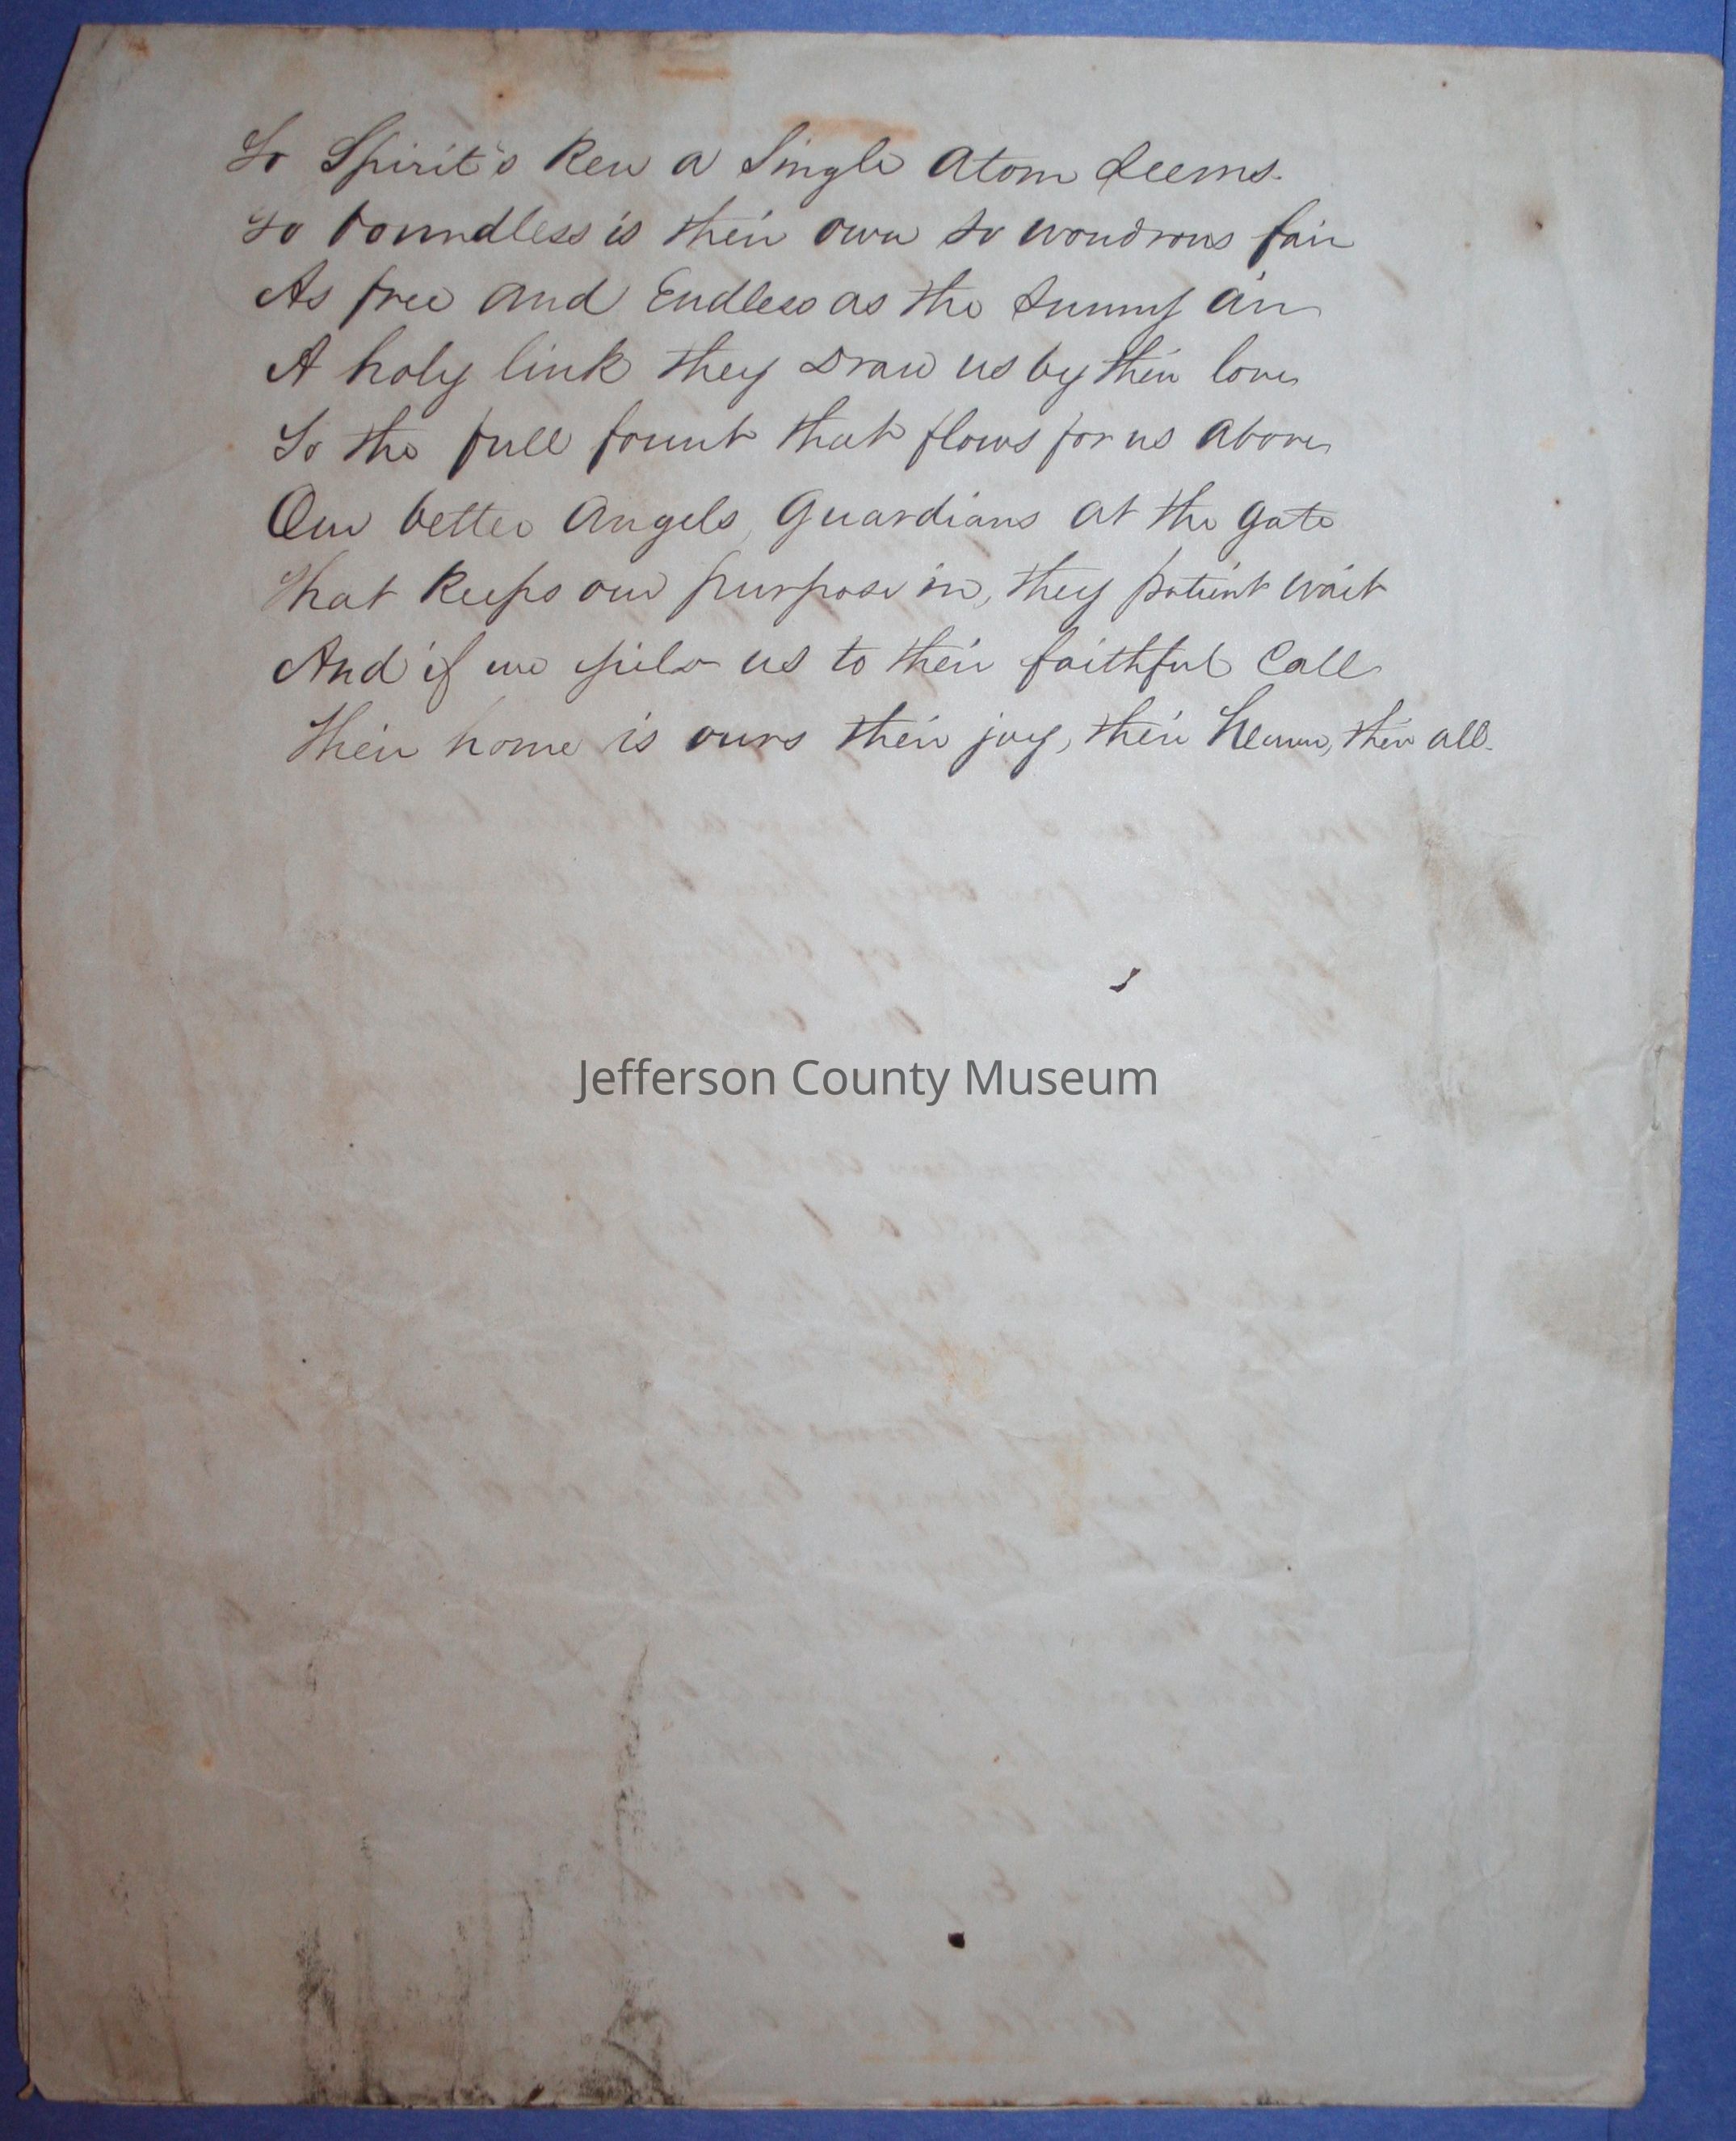 To Spirit's Ken a Single Atom Seems.
So boundless is their own so wondrous fair
As free and Endless as the Sunny air
A holy link they Draw us by their love
To the full fount that flows for us above
Our better Angels, Guardians at the gate
That Keeps our purpose in, they patient wait
And if we yield us to their faithful Call
Their home is ours their joy, their heaven, their all.
Jefferson County Museum